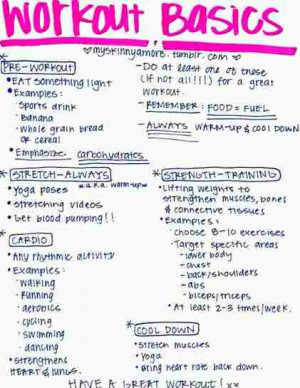 WORKOUT BASICS
♡myskinnyamore.tumblr.com♡
* PRE-WORKOUT
•EAT Something light
•Examples:
- Sports drink
- Banana
- Whole grain bread or cereal
•Emphasize carbohydrates
-DO at least one of those
(if not all!!!) for a great
workout.
-REMEMBER: FOOD = FUEL
-ALWAYS WARM-UP & COOL DOWN
* STRETCH-ALWAYS
*a.k.a. warm-up*
•Yoga poses
•Stretching videos
•Get blood pumping!!
* CARDIO
•Any rhythmic activity
•Examples:
-Walking
-Running
-aerobics
-cycling
-swimming
-dancing
•Strengthens
HEART & LUNGS.
* STRENGTH-TRAINING
•Lifting weights to
strengthen muscles, bones
& connective tissues
•Examples:
-Choose 8-10 exercises
-Target specific areas
-lower body
-chest
-back/shoulders
-abs
-biceps/triceps
•At least 2-3 times/week.
* COOL DOWN
•Stretch muscles
•Yoga
•Bring heart rate back down.
HAVE A GREAT WORKOUT! xx